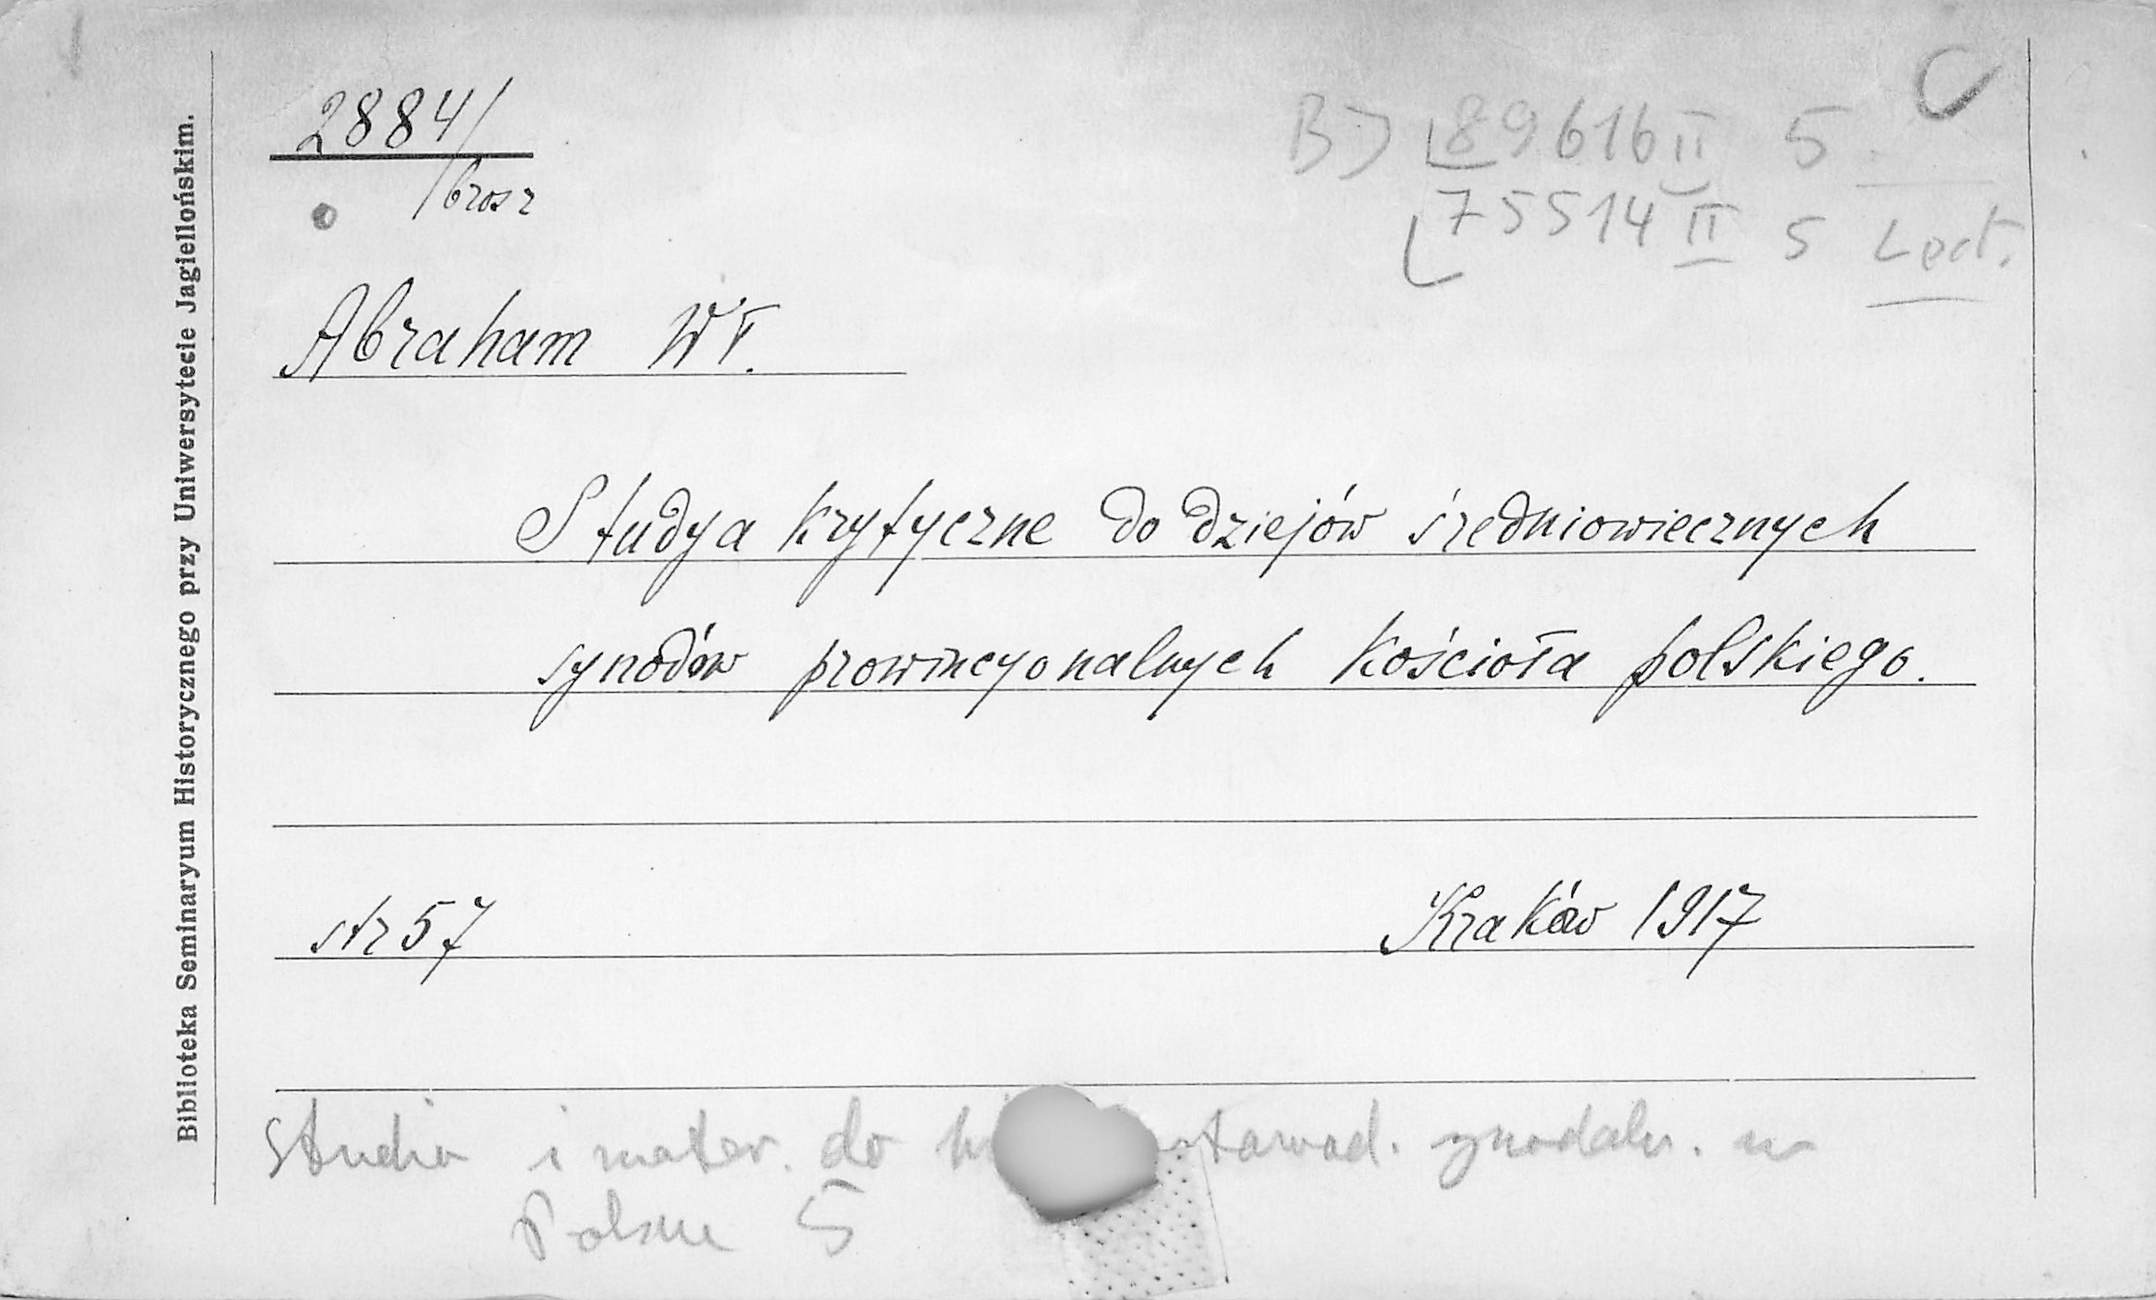 Biblioteka Seminaryum Historycznego przy Uniwersytecie Jagiellońskim.
2884/
brosz
B) 89616 II 5
75514 II 5 Lect.
Abraham Wł.
Studya krytyczne do dziejów średniowiecznych
synodów prowincyonalnych kościoła polskiego.
str 57 Kraków 1917
Studia i mater. do synodaln. w
Polsce 5